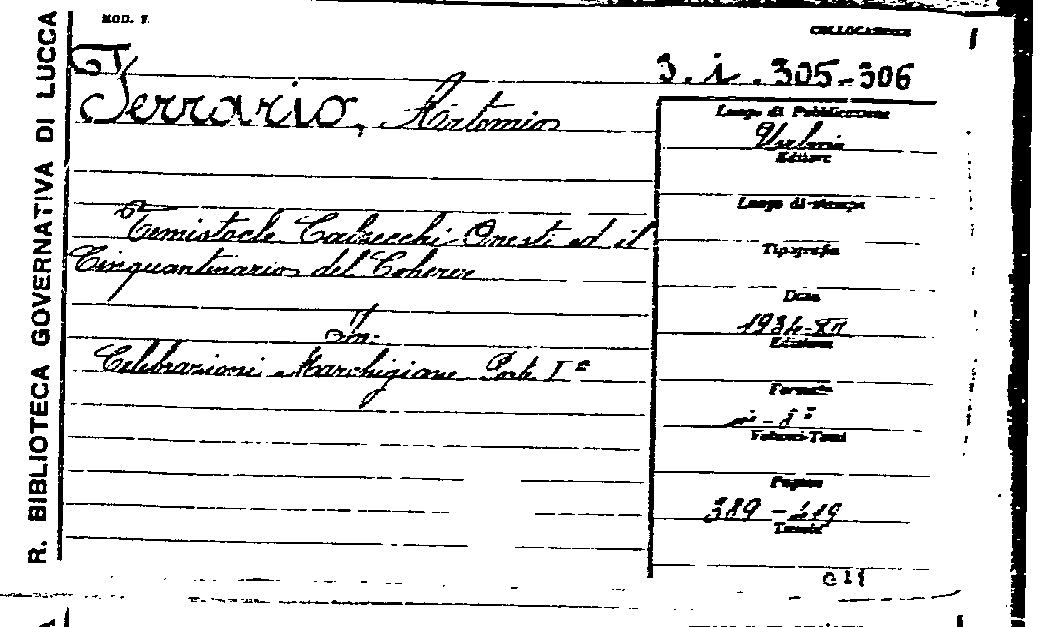 MOD. F.
COLLOCAZIONE
R. BIBLIOTECA GOVERNATIVA DI LUCCA
3. i. 305-306
Ferrario, Antonio
Temistocle Calzecchi-Onesti ed il
Cinquantenario del Coherer
In:
Celebrazioni Marchigiane Parte Iª
Luogo di Pubblicazione
Urbino
Editore
Luogo di stampa
Tipografia
Data
1934-XII
Edizione
Formato
in-8°
Volumi-Tomi
Pagine
389 - 419
Tavole